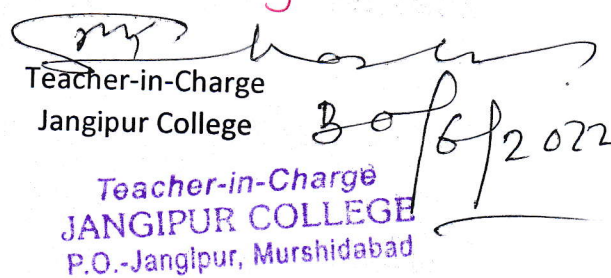 Teacher-in-Charge
Jangipur College
30/6/2022
Teacher-in-Charge
JANGIPUR COLLEGE
P.O.-Jangipur, Murshidabad